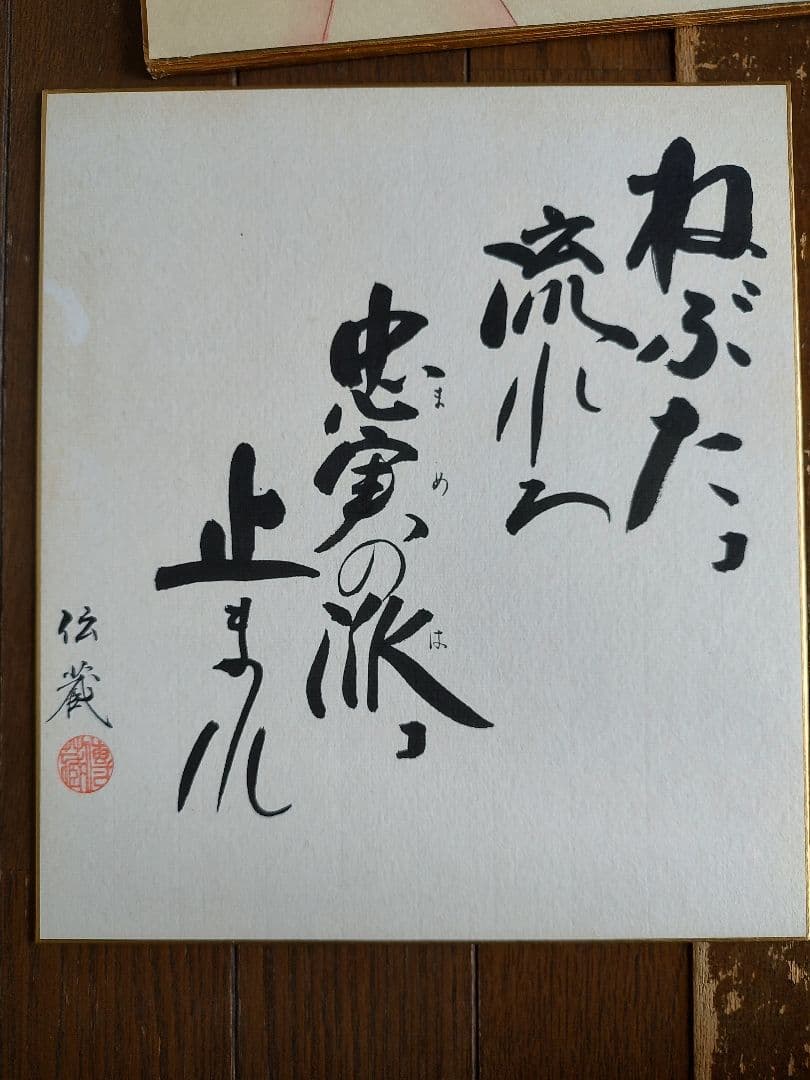 ねぶたコ
流れろ
忠実の派コ
まめ は
止まれ
伝蔵